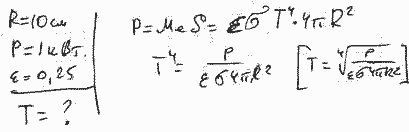 R=10см
P=1кВт.
ε=0,25
T=?
P=MeS=εσT⁴·4πR²
T⁴=P/εσ4πR² [T=⁴√P/εσ4πR²]